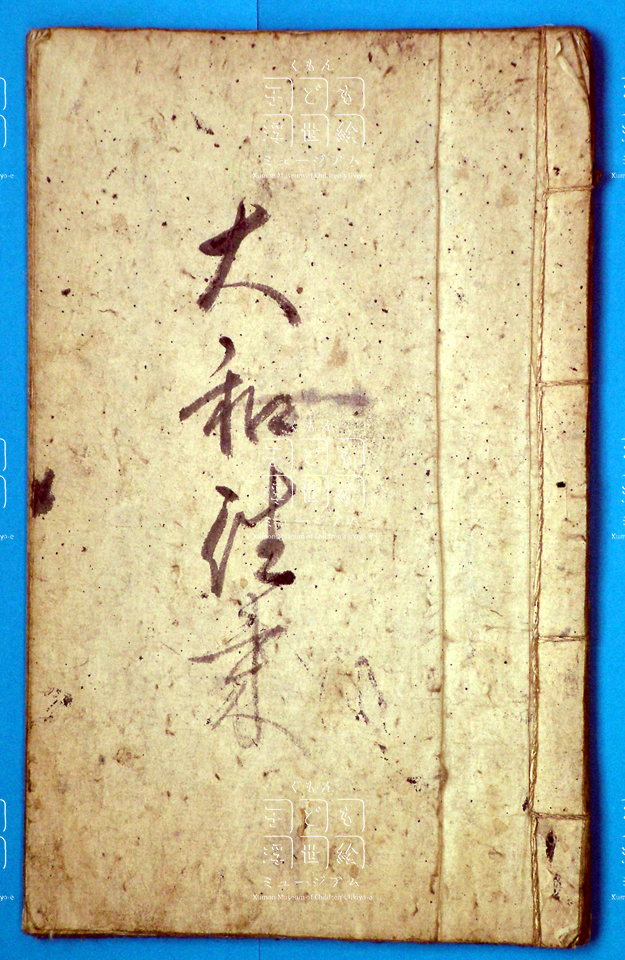 大和往来
くもん
子ども
浮世絵
ミュージアム
Kumon Museum of Children's Ukiyo-e
くもん
子ども
浮世絵
ミュージアム
Kumon Museum of Children's Ukiyo-e
くもん
子ども
浮世絵
ミュージアム
Kumon Museum of Children's Ukiyo-e